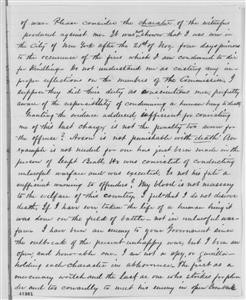 of war. Please consider the character of the witnesses
produced against me. It was shewn that I was now in
the City of New York after the 21st of Nov. four days previous
to the occurrence of the fires which I am condemned to die
for kindling. Do not understand me as casting any im-
proper reflections on the members of the Commission, I
suppose they did their duty as conscientious men properly
aware of the responsibility of condemning a human being to death
Granting the evidence addressed sufficient for convicting
me of this last charge is not the penalty too severe for
the offence? Arson is not punishable with death. An
example is not needed for one has just been made in the
person of Capt Beall. He was convicted of conducting
unlawful warfare and was executed. Is not his fate a
sufficient warning to offenders? My blood is not necessary
to the welfare of this country. That I do not deserve
death. If I have ever taken the life of a human being it
was done on the field of battle - not in unlawful war-
fare. I have been an enemy to your Government since
the outbreak of the present unhappy war but I have been an
open and honorable one. I am not a spy, or guerrilla -
holding each character in abhorrence. The first as a
mercenary wretch and the last as one who strikes for plun-
der and too cowardly to meet his enemy in open combat.